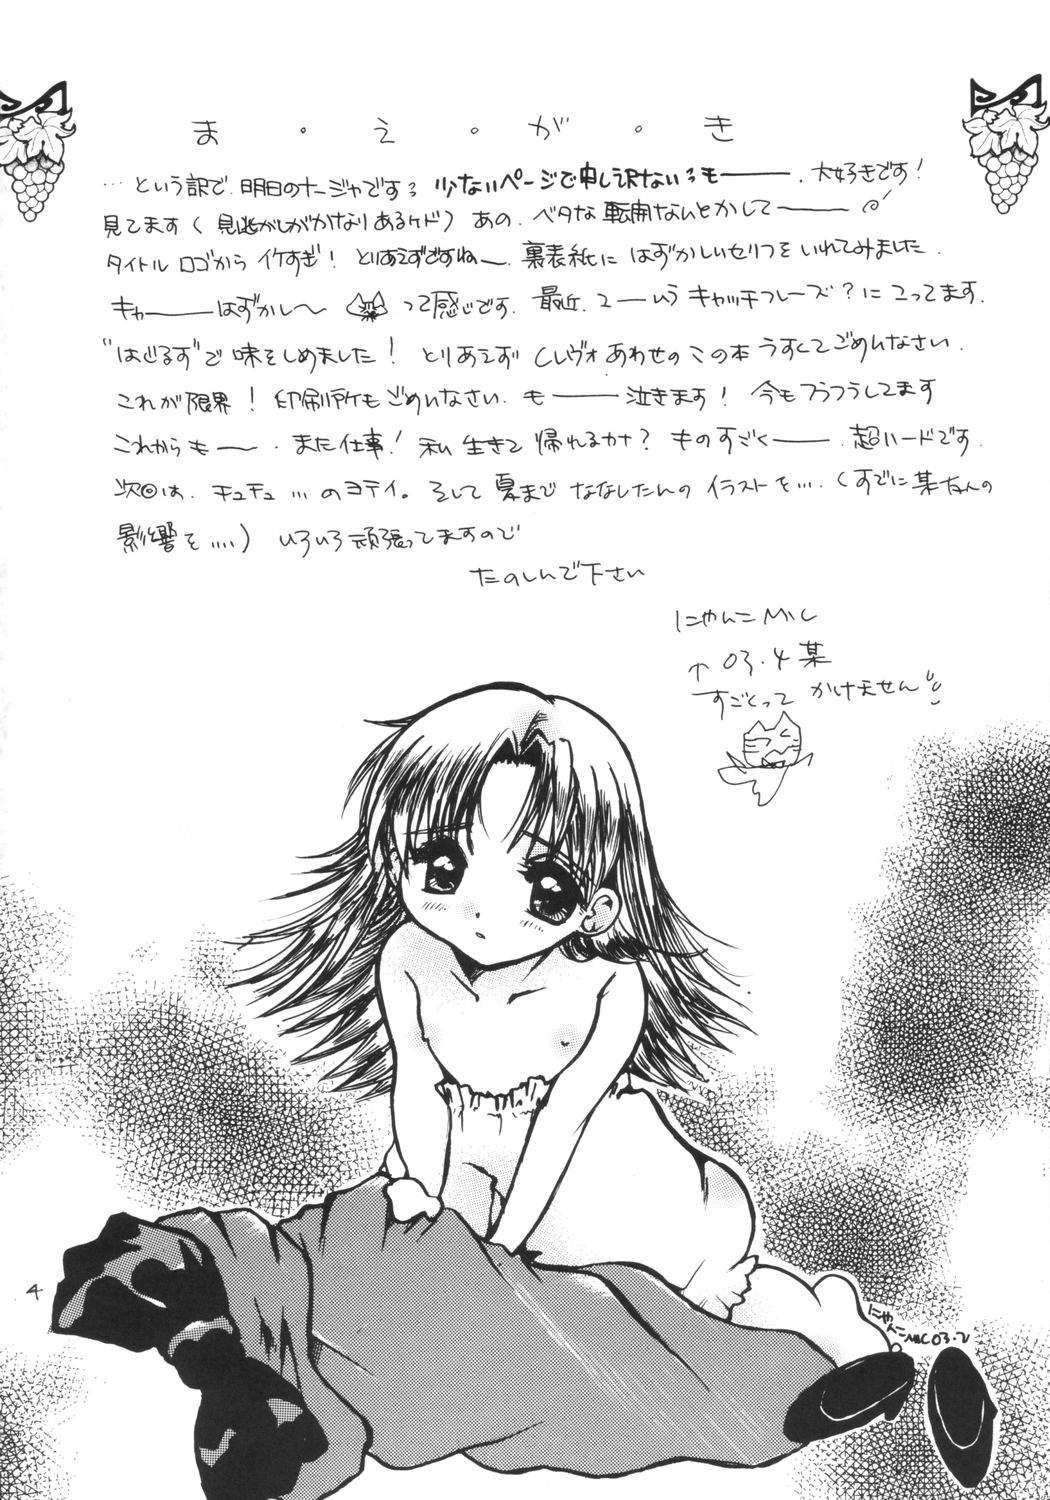 ま・え・が・き
…という訳で、明日のナージャですっ 少ないページで申し訳ないっも――、大好きです!
見てます(見逃しがかなりあるケド)あの、ベタな転開ないとかして――
タイトルロゴから イケすぎ! とりあえずですねー、裏表紙に はずかしいセリフを いれてみました、
キャ――はずかし〜 って感じです、最近、こーいうキャッチフレーズ?にこってます、
"はじるす"で味をしめました! とりあえず Cレヴォあわせのこの本うすくてごめんなさい、
これが限界! 印刷所もごめんなさい、も――泣きます! 今もフラフラしてます
これからも――、また仕事! 私 生きて 帰れるカナ? ものすごく――、超ハードです、
次回は、チュチュ…のヨテイ。そして夏まで ななしたんの イラストを…、(すでに某ちゃんの
影響を…)いろいろ頑張ってますので
たのしんで下さい
にゃんこMIC
↑03.4某
すごとって かけません
にゃんこMIC03.2
4